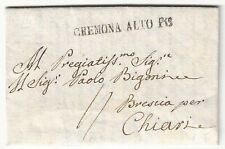 CREMONA ALTO Pò
Al Pregiatiss.mo Sig.re
Il Sig.r Paolo Bigoni
Brescia per
Chiari